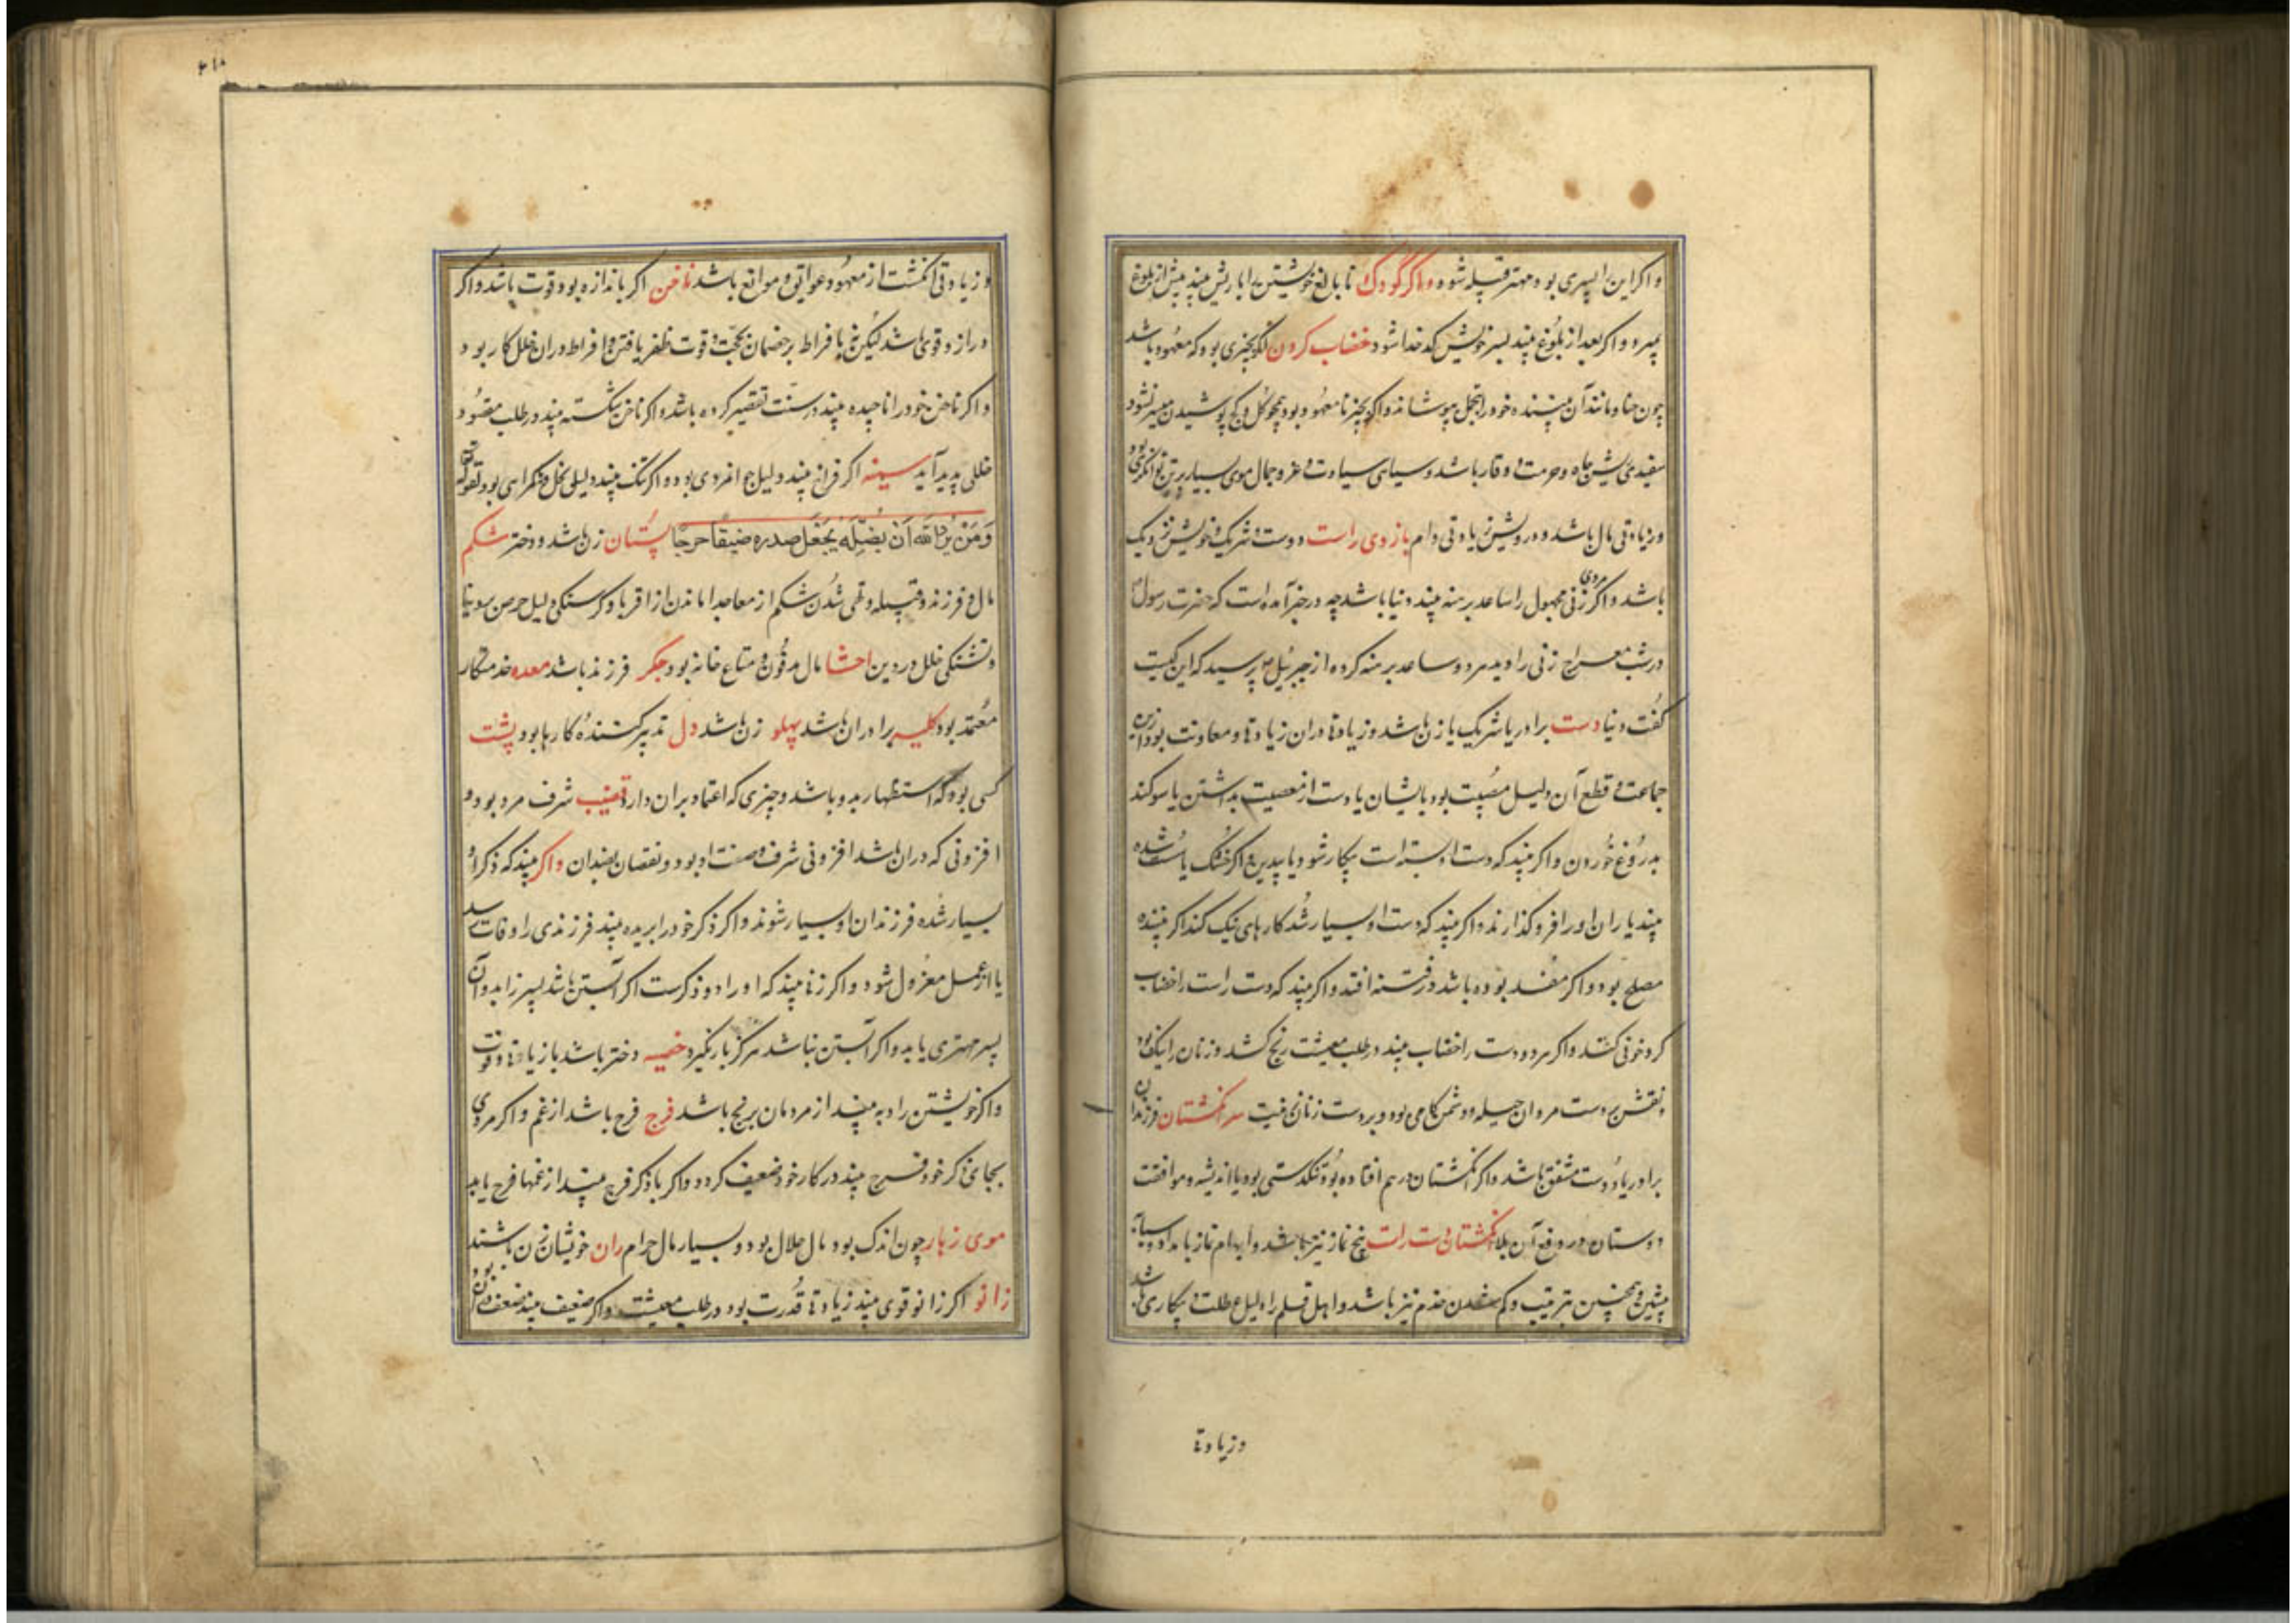 و اکر این را پسری بود مهتر قبیله شود و اکر کودک نابالغ خویشتن را با ریش بیند پیش از بلوغ
بمیرد و اکر بعد از بلوغ بیند بسر خویش کدخدا شود خضاب کردن اکر بچیزی بود که معهود باشد
چون حنا و مانند آن بیننده خود را بتجمل بپوشاند و اکر بچیز نامعهود بود همچو کل و کج پوشیدن میسر نشود
سفیدی ریش جاه و حرمت و وقار باشد و سیاهی سیادت و عز و جمال موی بسیار بر تن توانکری بود
و زیادتی مال باشد و درویش زیادتی وام بازوی راست دوست و شریک و خویش نزدیک
باشد و اکر مردی زنی مجهول را ساعد برهنه بیند دنیا باشد چه در خبر آمده است که حضرت رسول
در شب معراج زنی را دید هر دو ساعد برهنه کرده از جبرئیل پرسید که این کیست
کفت دنیا دست برادر یا شریک یا زن باشد و زیادتی دران زیادتی و معاونت بود ازین
جماعت و قطع آن دلیل مصیبت بود بایشان یا دست از معصیت بداشتن یا سوکند
بدروغ خوردن و اکر بیند که دست او بسته است بیکار شود یا بی‌دین و اکر خشک یا سست شده
بیند یاران او را فرو کذارند و اکر بیند که دست او بسیار شد کارهای نیک کند اکر بیننده
مصلح بود و اکر مفسد بوده باشد در فتنه افتد و اکر بیند که دست راست را خضاب
کرد خونی کند و اکر هر دو دست را خضاب بیند در طلب معیشت رنج کشد و زنان را نیک بود
و نقش بر دست مردان حیله و دشمن کامی بود و بر دست زنان زینت سر انکشتان فرزندان
برادر یا دوست مشفق باشد و اکر انکشتان درهم افتاده بود تنکدستی بود یا اندیشه و موافقت
دوستان در دفع آن بلا انکشتان دست راست پنج نماز نیز باشد و ابهام نماز بامداد و سبابه
پیشین و همچنین بترتیب و کم شدن خدم نیز باشد و اهل قلم را دلیل عطلت و بیکاری باشد
و زیادتی
و زیادتی انکشت از معهود عوایق و موانع باشد ناخن اکر باندازه بود قوت باشد و اکر
دراز و قوی باشد لیکن نه بافراط بر خصمان بحجت و قوت ظفر یافتن و افراط دران خلل کار بود
و اکر ناخن خود را ناچیده بیند در سنت تقصیر کرده باشد و اکر ناخن شکسته بیند در طلب مقصود
خللی پدید آید سینه اکر فراخ بیند دلیل جوانمردی بود و اکر تنک بیند دلیل بخل و کمراهی بود لقوله تعالی
وَمَنْ يُرِدِ اللّه اَنْ يُضِلَّهُ يَجْعَلْ صدره ضيقاً حرجاً پستان زن باشد و دختر شکم
مال و فرزند و قبیله و تهی شدن شکم از معا جدا ماندن از اقربا و کرسنکی دلیل حرص بر دنیا
و تشنکی خلل در دین احشا مال مدفون و متاع خانه بود جکر فرزند باشد معده خدمتکار
معتمد بود کلیه برادران باشد پهلو زن باشد دل تدبیر کننده کارها بود پشت
کسی بود که استظهار بدو باشد و چیزی که اعتماد بران دارد قضیب شرف مرد بود و
افزونی که دران باشد افزونی شرف و صنت او بود و نقصان بضد آن و اکر بیند که ذکر او
بسیار شده فرزندان او بسیار شوند و اکر ذکر خود را بریده بیند فرزندی را وفات رسد
یا از عمل معزول شود و اکر زنی بیند که او را دو ذکرست اکر آبستن باشد پسر زاید و آن
پسر مهتری یابد و اکر آبستن نباشد هرکز بار نکیرد خصیه دختر باشد یا زیادتی قوت
و اکر خویشتن را دبه بیند از مردمان برنج باشد فرج فرح باشد از غم و اکر مردی
بجای ذکر خود فرج بیند در کار خود ضعیف کردد و اکر با ذکر فرج بیند از غمها فرح یابد
موی زهار چون اندک بود مال حلال بود و بسیار مال حرام ران خویشان زن باشند
زانو اکر زانو قوی بیند زیادتی قدرت بود در طلب معیشت و اکر ضعیف بیند ضعف آن بود